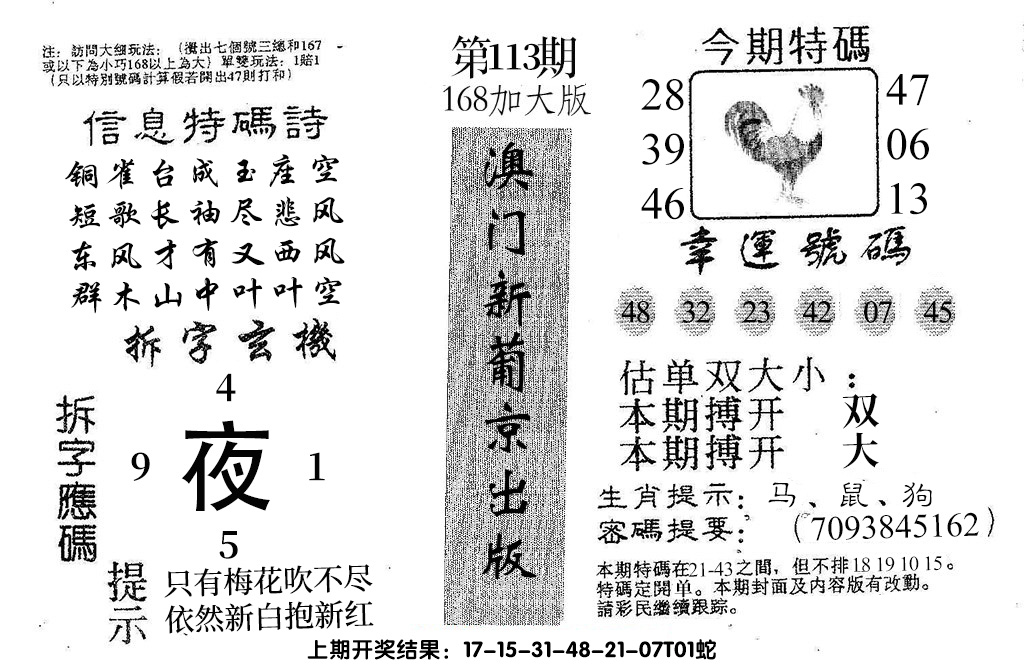 注：訪問大细玩法：（攪出七個號三總和167
或以下為小巧168以上為大）單雙玩法：1賠1
（只以特別號碼計算假若開出47則打和）
信息特碼詩
铜雀台成玉座空
短歌长袖尽悲风
东风才有又西风
群木山中叶叶空
拆字玄機
拆字應碼
4
9 夜 1
5
提示
只有梅花吹不尽
依然新白抱新红
第113期
168加大版
澳门新葡京出版
今期特碼
28 47
39 06
46 13
幸運號碼
48 32 23 42 07 45
估单双大小：
本期搏开 双
本期搏开 大
生肖提示：马、鼠、狗
密碼提要：（7093845162）
本期特碼在21-43之間，但不排18 19 10 15。
特碼定開单。本期封面及内容版有改動。
請彩民繼續跟踪。
上期开奖结果：17-15-31-48-21-07T01蛇